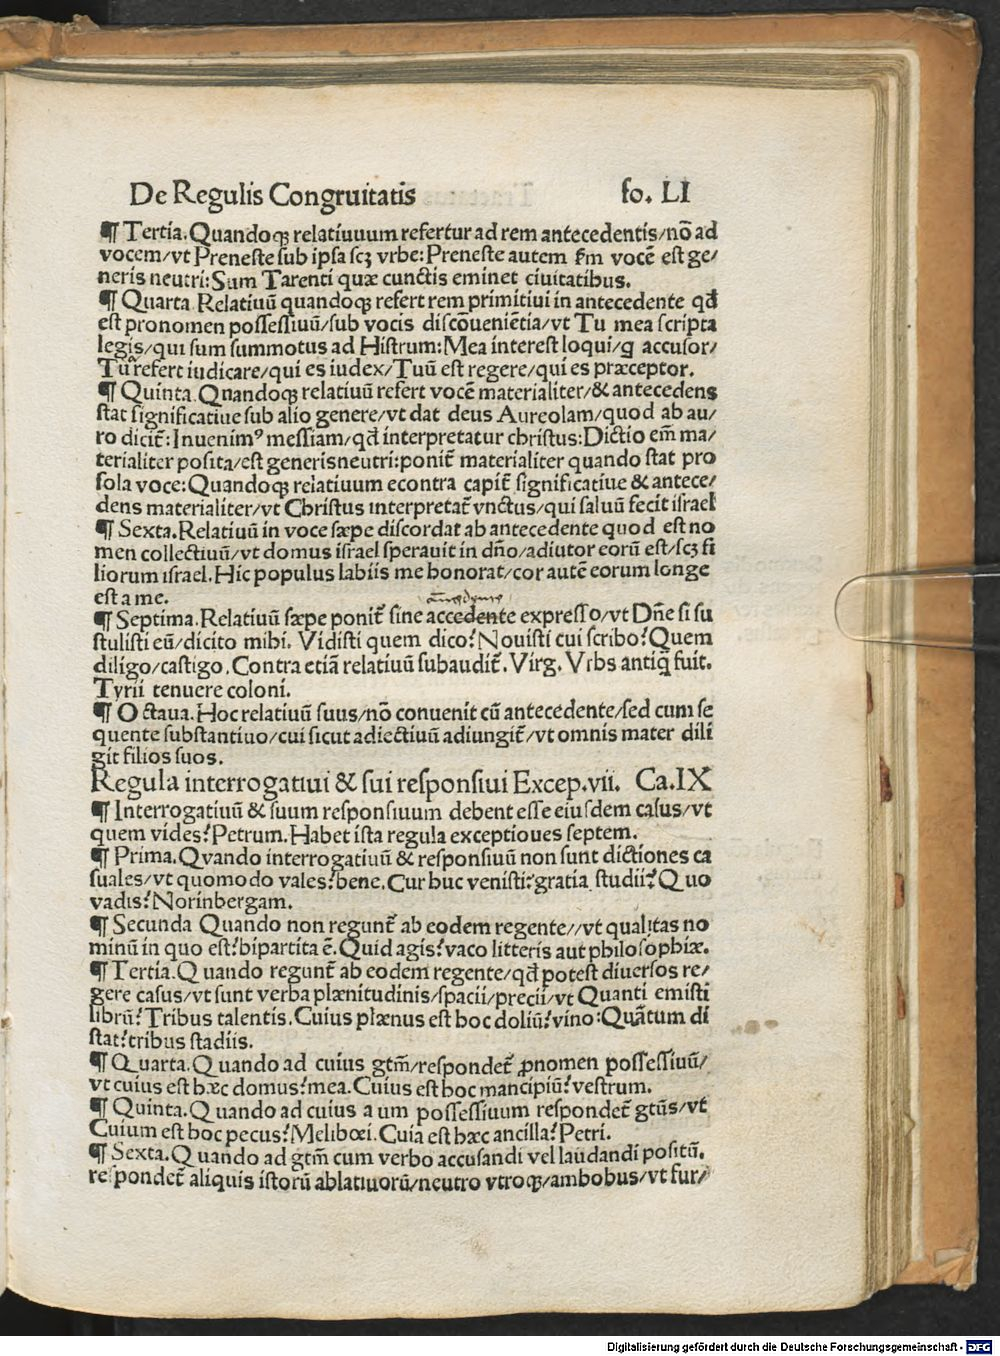 De Regulis Congruitatis fo. LI
¶ Tertia. Quandoqꝫ relatiuuum refertur ad rem antecedentis/nõ ad
vocem/vt Preneste sub ipsa scꝫ vrbe: Preneste autem fm̃ vocẽ est ge/
neris neutri: Sum Tarenti quæ cunctis eminet ciuitatibus.
¶ Quarta. Relatiuũ quandoqꝫ refert rem primitiui in antecedente qđ
est pronomen possessiuũ/sub vocis discõueniẽtia/vt Tu mea scripta
legis/qui sum summotus ad Histrum: Mea interest loqui/q̨ accusor/
Tua refert iudicare/qui es iudex/Tuũ est regere/qui es præceptor.
¶ Quinta. Qnandoqꝫ relatiuũ refert vocẽ materialiter/& antecedens
stat significatiue sub alio genere/vt dat deus Aureolam/quod ab au/
ro dicit̃: Inuenimꝰ messiam/qđ interpretatur christus: Dictio em̃ ma/
terialiter posita/est generis neutri: ponit̃ materialiter quando stat pro
sola voce: Quandoqꝫ relatiuum econtra capit̃ significatiue & antece/
dens materialiter/vt Christus interpretat̃ vnctus/qui saluũ fecit israel
¶ Sexta. Relatiuũ in voce sæpe discordat ab antecedente quod est no
men collectiuũ/vt domus israel sperauit in dño/adiutor eorũ est/scꝫ fi
liorum israel. Hic populus labiis me honorat/cor autẽ eorum longe
est a me.
¶ Septima. Relatiuũ sæpe ponit̃ sine accedente expresso/vt Dñe si su
stulisti eũ/dicito mihi. Vidisti quem dico? Nouisti cui scribo? Quem
diligo/castigo. Contra etiã relatiuũ subaudit̃. Virg. Vrbs antiq̃ fuit.
Tyrii tenuere coloni.
¶ Octaua. Hoc relatiuũ suus/nõ conuenit cũ antecedente/sed cum se
quente substantiuo/cui sicut adiectiuũ adiungit̃/vt omnis mater dili
git filios suos.
Regula interrogatiui & sui responsiui Excep.vii. Ca.IX
¶ Interrogatiuũ & suum responsiuum debent esse eiusdem casus/vt
quem vides? Petrum. Habet ista regula exceptioues septem.
¶ Prima. Qvando interrogatiuũ & responsiuũ non sunt dictiones ca
suales/vt quomodo vales? bene. Cur huc venisti? gratia studii? Quo
vadis? Norinbergam.
¶ Secunda Quando non regunt̃ ab eodem regente//vt qualitas no
minũ in quo est? bipartita ẽ. Quid agis? vaco litteris aut philosophiæ.
¶ Tertia. Quando regunt̃ ab eodem regente/qđ potest diuersos re/
gere casus/vt sunt verba plænitudinis/spacii/precii/vt Quanti emisti
librũ? Tribus talentis. Cuius plænus est hoc doliũ? vino: Quãtum di
stat? tribus stadiis.
¶ Quarta. Quando ad cuius gtm̃/respondet̃ ꝓnomen possessiuũ/
vt cuius est hæc domus? mea. Cuius est hoc mancipiũ? vestrum.
¶ Quinta. Quando ad cuius a um possessiuum respondet̃ gtũs/vt
Cuium est hoc pecus? Melibœi. Cuia est hæc ancilla? Petri.
¶ Sexta. Quando ad gtm̃ cum verbo accusandi vel laudandi positũ.
respondet̃ aliquis istorũ ablatiuorũ/neutro vtroqꝫ/ambobus/vt fur/
Digitalisierung gefördert durch die Deutsche Forschungsgemeinschaft - DFG